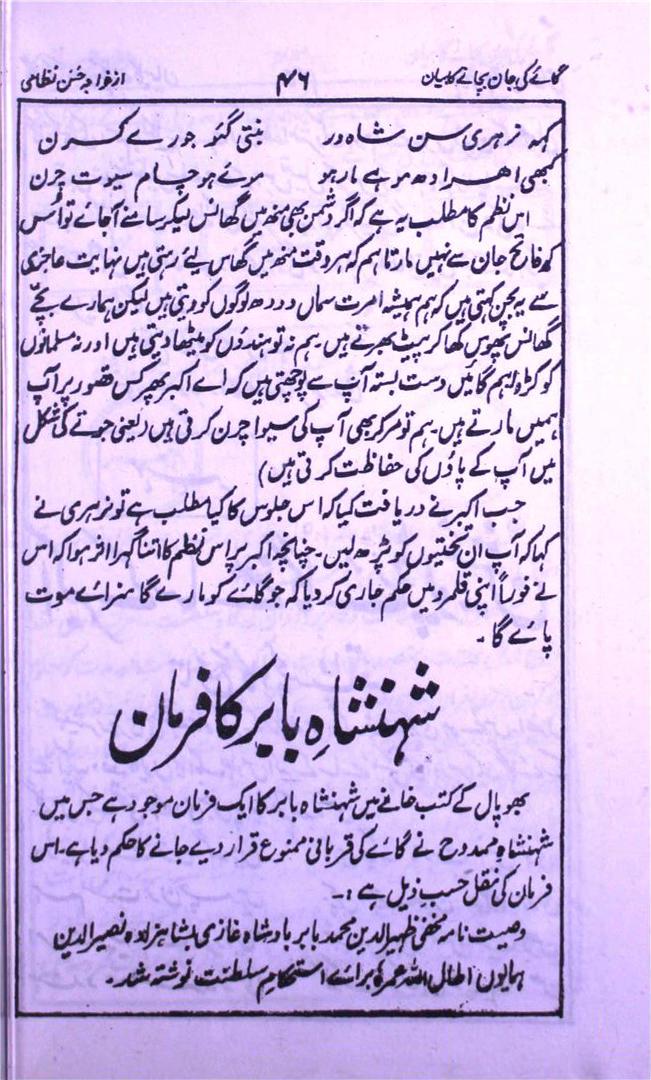 گائے کی جان بچانے کا بیان ۴۶ از خواجہ حسن نظامی
کہہ نرہری سن شاہ در بنتی گئو جورے کرن
کبھی اھرادھ موہے مارہو مرئے ہو چام سیوت چرن
اس نظم کا مطلب یہ ہے کہ اگر دشمن بھی منھ میں گھانس لیکر سامنے آجائے تو اُس
کو فاتح جان سے نہیں مارتا ہم کہ ہر وقت منھ میں گھاس لئے رہتی ہیں نہایت عاجزی
سے یہ بچن کہتی ہیں کہ ہم ہمیشہ امرت سمان دودھ لوگوں کو دیتی ہیں لیکن ہمارے بچّے
گھانس پھوس کھا کر پیٹ بھرتے ہیں ۔ ہم نہ تو ہندوؤں کو میٹھا دیتی ہیں اور نہ مسلمانوں
کو کڑوا ہم گائیں دست بستہ آپ سے پوچھتی ہیں کہ اے اکبر پھر کس قصور پر آپ
ہمیں مارتے ہیں ۔ ہم تو مر کر بھی آپ کی سیوا چرن کرتی ہیں (یعنی جوتے کی شکل
میں آپ کے پاؤں کی حفاظت کرتی ہیں)
جب اکبر نے دریافت کیا کہ اس جلوس کا کیا مطلب ہے تو نرہری نے
کہا کہ آپ ان تختیوں کو پڑھ لیں ۔ چنانچہ اکبر پر اس نظم کا اتنا گہرا اثر ہوا کہ اس
نے فوراً اپنی قلمرو میں حکم جاری کر دیا کہ جو گائے کو مارے گا سزائے موت
پائے گا ۔
شہنشاہِ بابر کا فرمان
بھوپال کے کتب خانے میں شہنشاہ بابر کا ایک فرمان موجود ہے جس میں
شہنشاہِ ممدوح نے گائے کی قربانی ممنوع قرار دیے جانے کا حکم دیا ہے ۔ اس
فرمان کی نقل حسب ذیل ہے :۔
وصیت نامہ مخفی ظہیر الدین محمد بابر بادشاہ غازی بشاہزادہ نصیر الدین
ہمایوں اطال اللہ عمرہٗ برائے استحکامِ سلطنت نوشتہ شد ۔